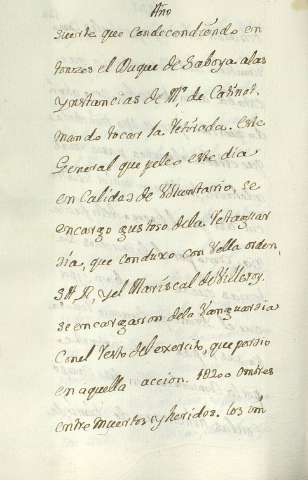 Año
suerte que Condecendiendo en
tonzes el Duque de Saboya a las
Ynstancias de Mr. de Catinat.
mando tocar la Retirada. Este
General que peleo este dia
en Calidad de Voluntario, se
encargo gustoso dela Retaguar
dia, que conduxo con bella orden,
S.A.R, y el Mariscal de Villeroy.
se encargaron dela Vanguardia
Con el Resto del exercito, que perdio
en aquella accion. 1820 ombres
entre Muertos y heridos. los